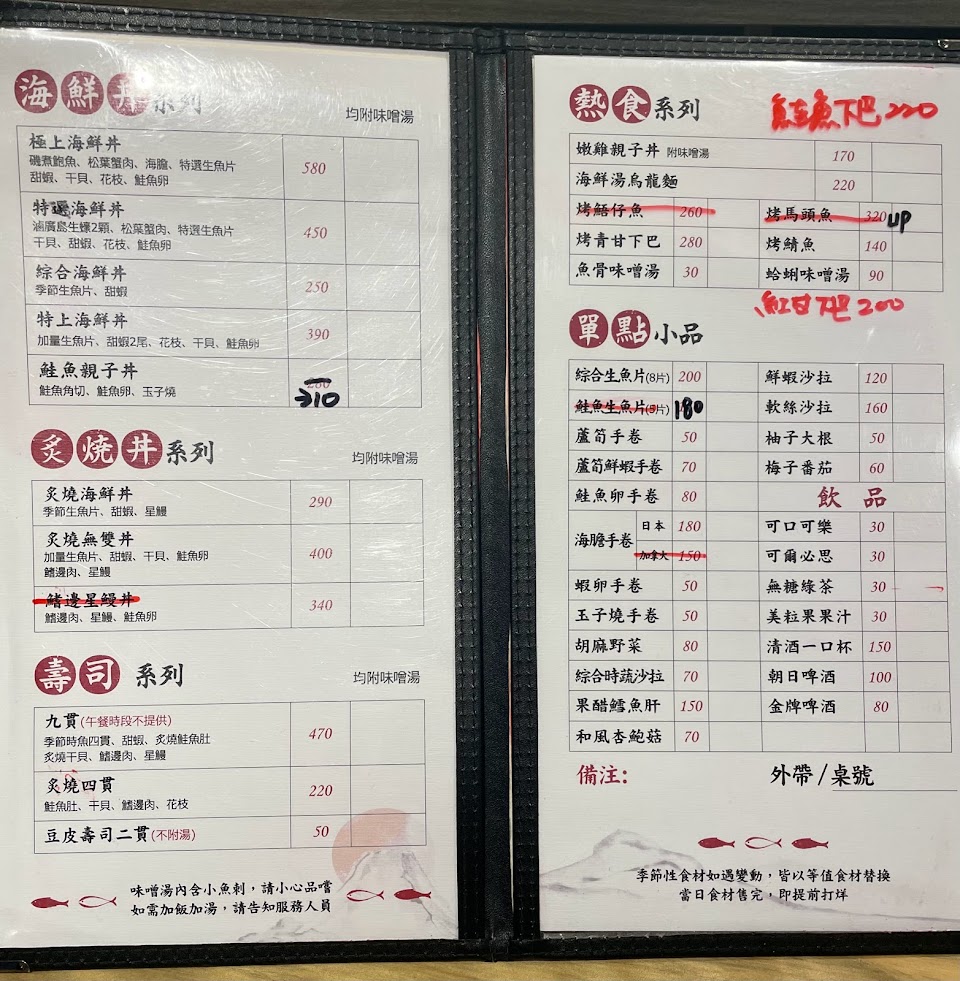 海鮮丼系列 均附味噌湯
極上海鮮丼 580
磯煮鮑魚、松葉蟹肉、海膽、特選生魚片
甜蝦、干貝、花枝、鮭魚卵
特選海鮮丼 450
滷廣島生蠔2顆、松葉蟹肉、特選生魚片
干貝、甜蝦、花枝、鮭魚卵
綜合海鮮丼 250
季節生魚片、甜蝦
特上海鮮丼 390
加量生魚片、甜蝦2尾、花枝、干貝、鮭魚卵
鮭魚親子丼 280 310
鮭魚角切、鮭魚卵、玉子燒
炙燒丼系列 均附味噌湯
炙燒海鮮丼 290
季節生魚片、甜蝦、星鰻
炙燒無雙丼 400
加量生魚片、甜蝦、干貝、鮭魚卵
鰭邊肉、星鰻
鰭邊星鰻丼 340
鰭邊肉、星鰻、鮭魚卵
壽司 系列 均附味噌湯
九貫(午餐時段不提供) 470
季節時魚四貫、甜蝦、炙燒鮭魚肚
炙燒干貝、鰭邊肉、星鰻
炙燒四貫 220
鮭魚肚、干貝、鰭邊肉、花枝
豆皮壽司二貫(不附湯) 50
味噌湯內含小魚刺，請小心品嚐
如需加飯加湯，請告知服務人員
熱食系列 鮭魚下巴 220
嫩雞親子丼 附味噌湯 170
海鮮湯烏龍麵 220
烤鯃仔魚 260 烤馬頭魚 320 up
烤青甘下巴 280 烤鯖魚 140
魚骨味噌湯 30 蛤蜊味噌湯 90
紅甘下巴 200
單點小品
綜合生魚片(8片) 200 鮮蝦沙拉 120
鮭魚生魚片(5片) 180 軟絲沙拉 160
蘆筍手卷 50 柚子大根 50
蘆筍鮮蝦手卷 70 梅子番茄 60
鮭魚卵手卷 80 飲品
海膽手卷 日本 180 可口可樂 30
加拿大 150 可爾必思 30
蝦卵手卷 50 無糖綠茶 30
玉子燒手卷 50 美粒果果汁 30
胡麻野菜 80 清酒一口杯 150
綜合時蔬沙拉 70 朝日啤酒 100
果醋鱈魚肝 150 金牌啤酒 80
和風杏鮑菇 70
備注: 外帶/桌號
季節性食材如遇變動，皆以等值食材替換
當日食材售完，即提前打烊